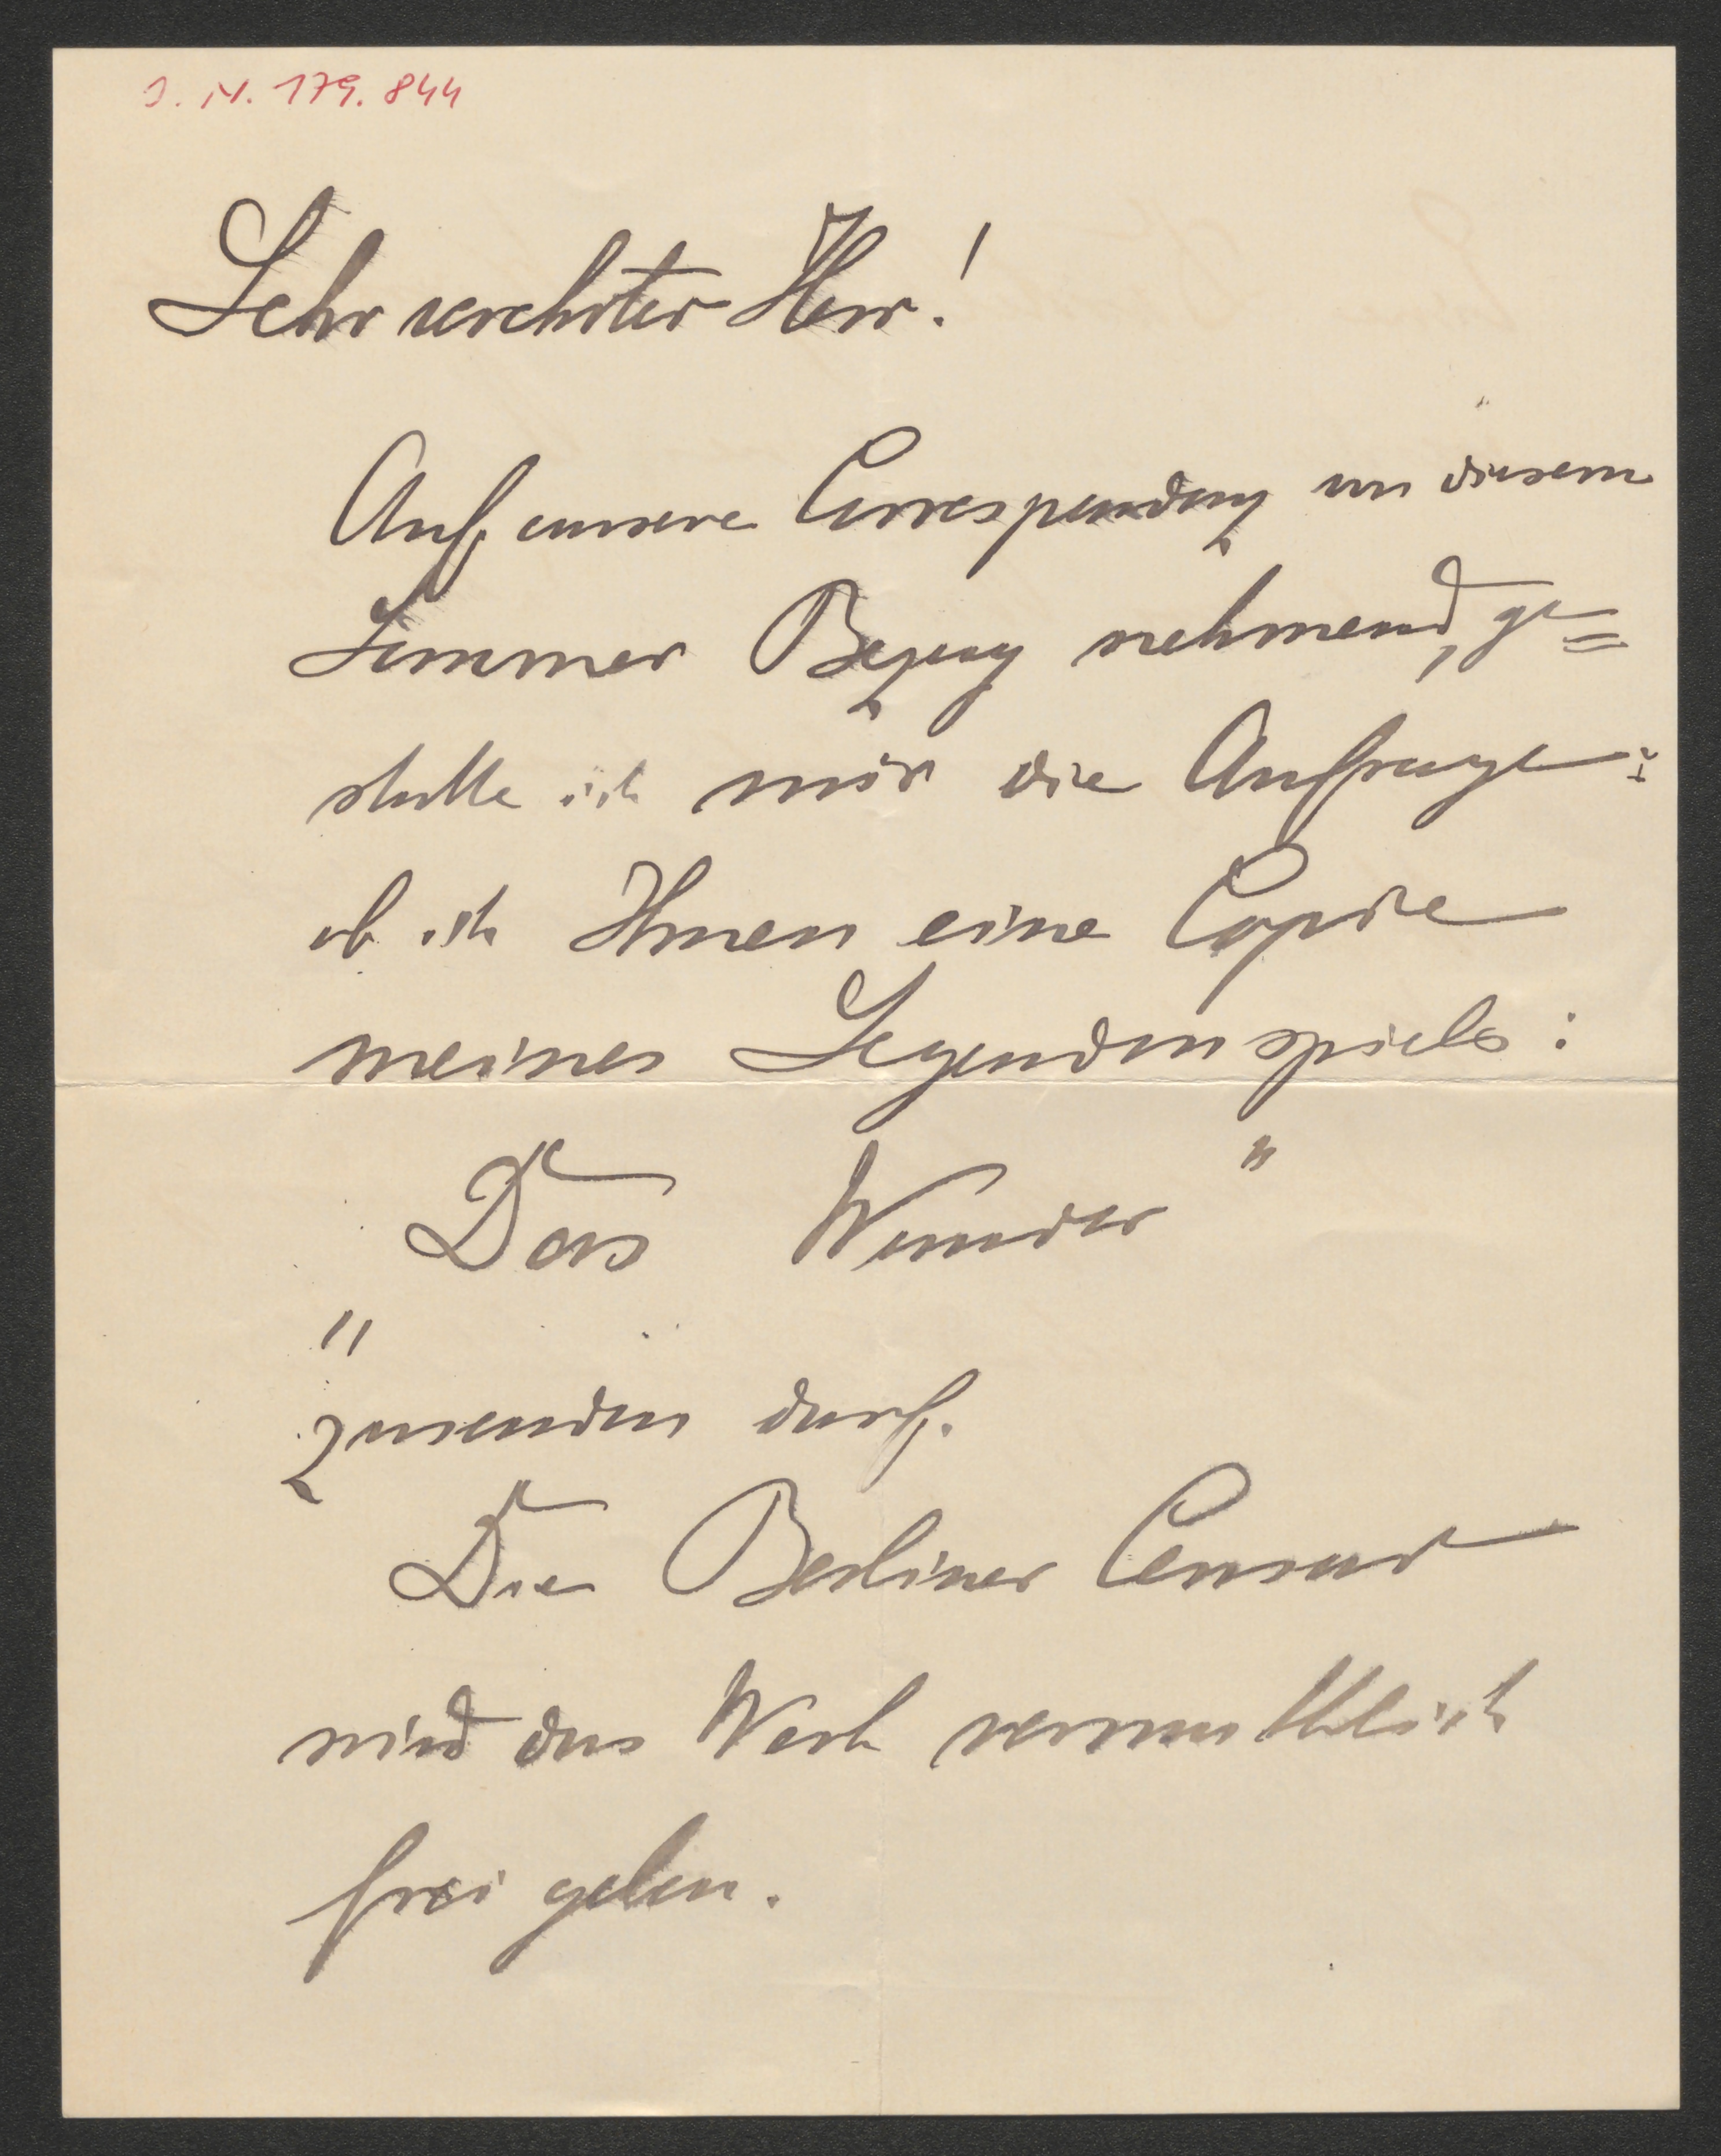 J. N. 179.844
Sehr verehrter Herr!
Auf unsere Correspondenz in diesem
Sommer Bezug nehmend, ge=
statte ich mir die Anfrage:
ob ich Ihnen eine Copie
meines Legendenspiels:
Das Wunder"
"
zusenden darf.
Die Berliner Censur
wird das Werk vermuthlich
frei geben.